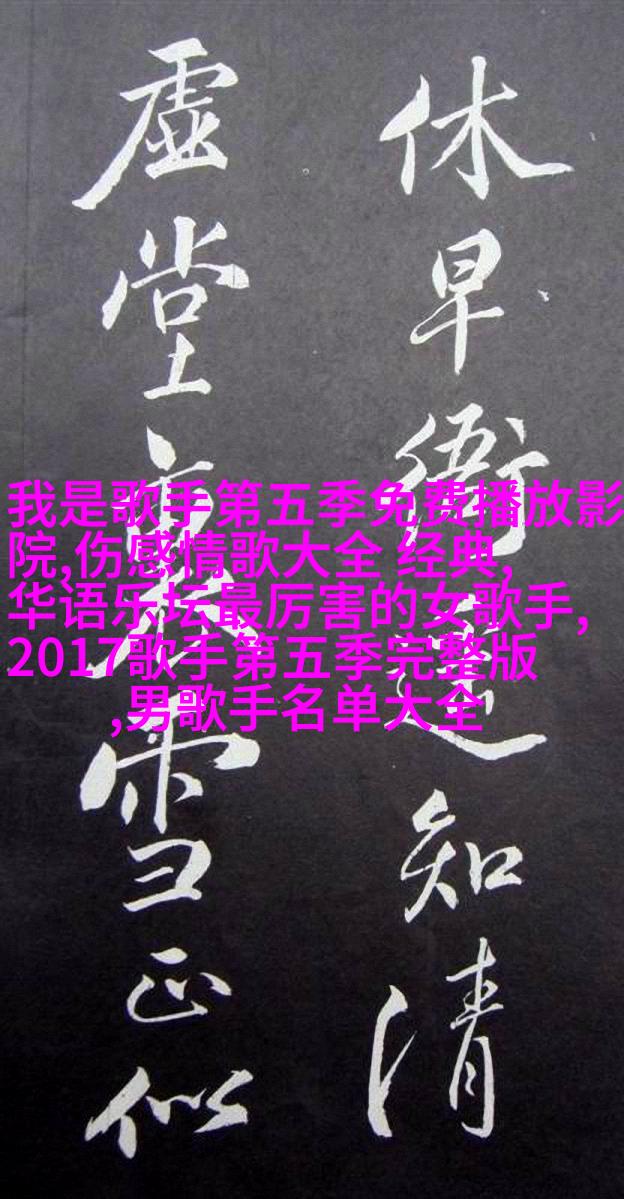 我是歌手第五季免费播放影
院,伤感情歌大全 经典,
华语乐坛最厉害的女歌手,
2017歌手第五季完整版
,男歌手名单大全
休早衙知清
虚堂雪正似